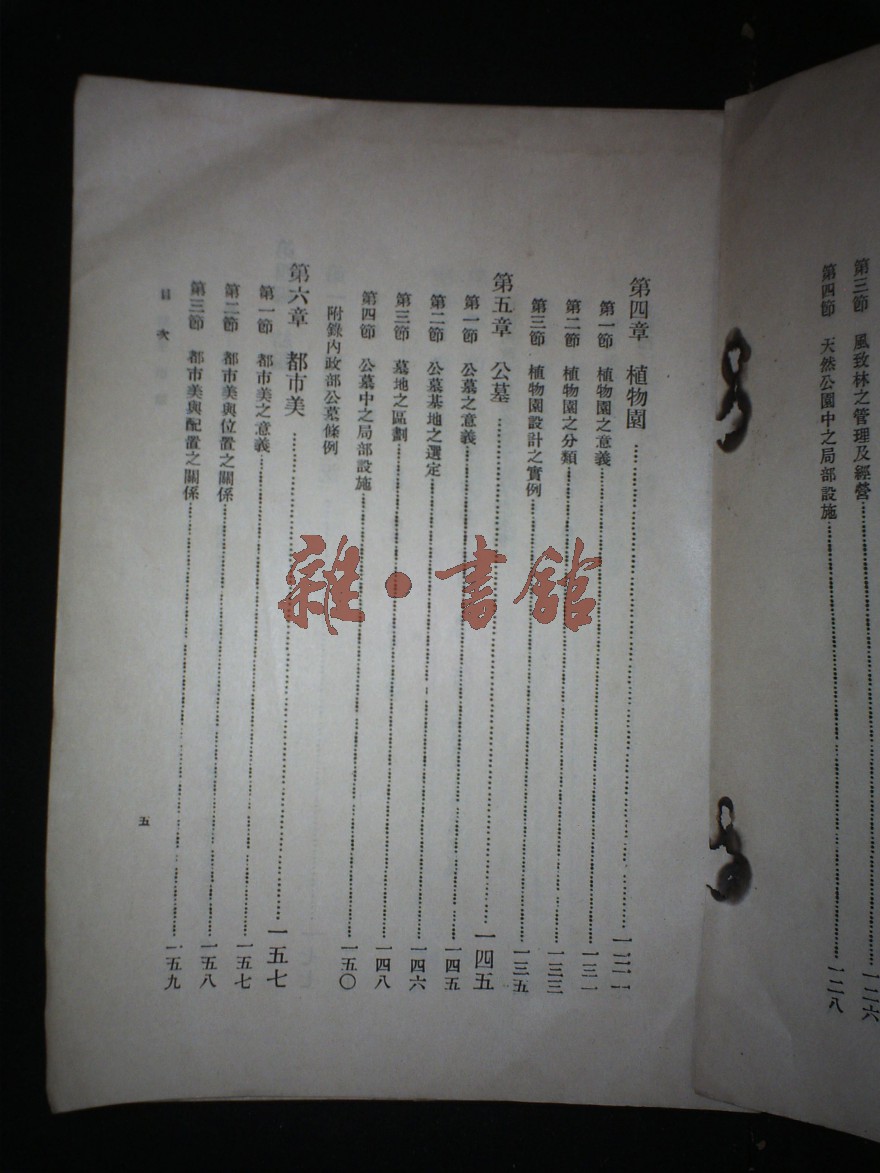 第三節 風致林之管理及經營……一二六
第四節 天然公園中之局部設施……一二八
第四章 植物園……一三一
第一節 植物園之意義……一三一
第二節 植物園之分類……一三三
第三節 植物園設計之實例……一三五
第五章 公墓……一四五
第一節 公墓之意義……一四五
第二節 公墓基地之選定……一四六
第三節 墓地之區劃……一四八
第四節 公墓中之局部設施……一五〇
附錄內政部公墓條例
第六章 都市美……一五七
第一節 都市美之意義……一五七
第二節 都市美與位置之關係……一五八
第三節 都市美與配置之關係……一五九
目次
五
雜·書館